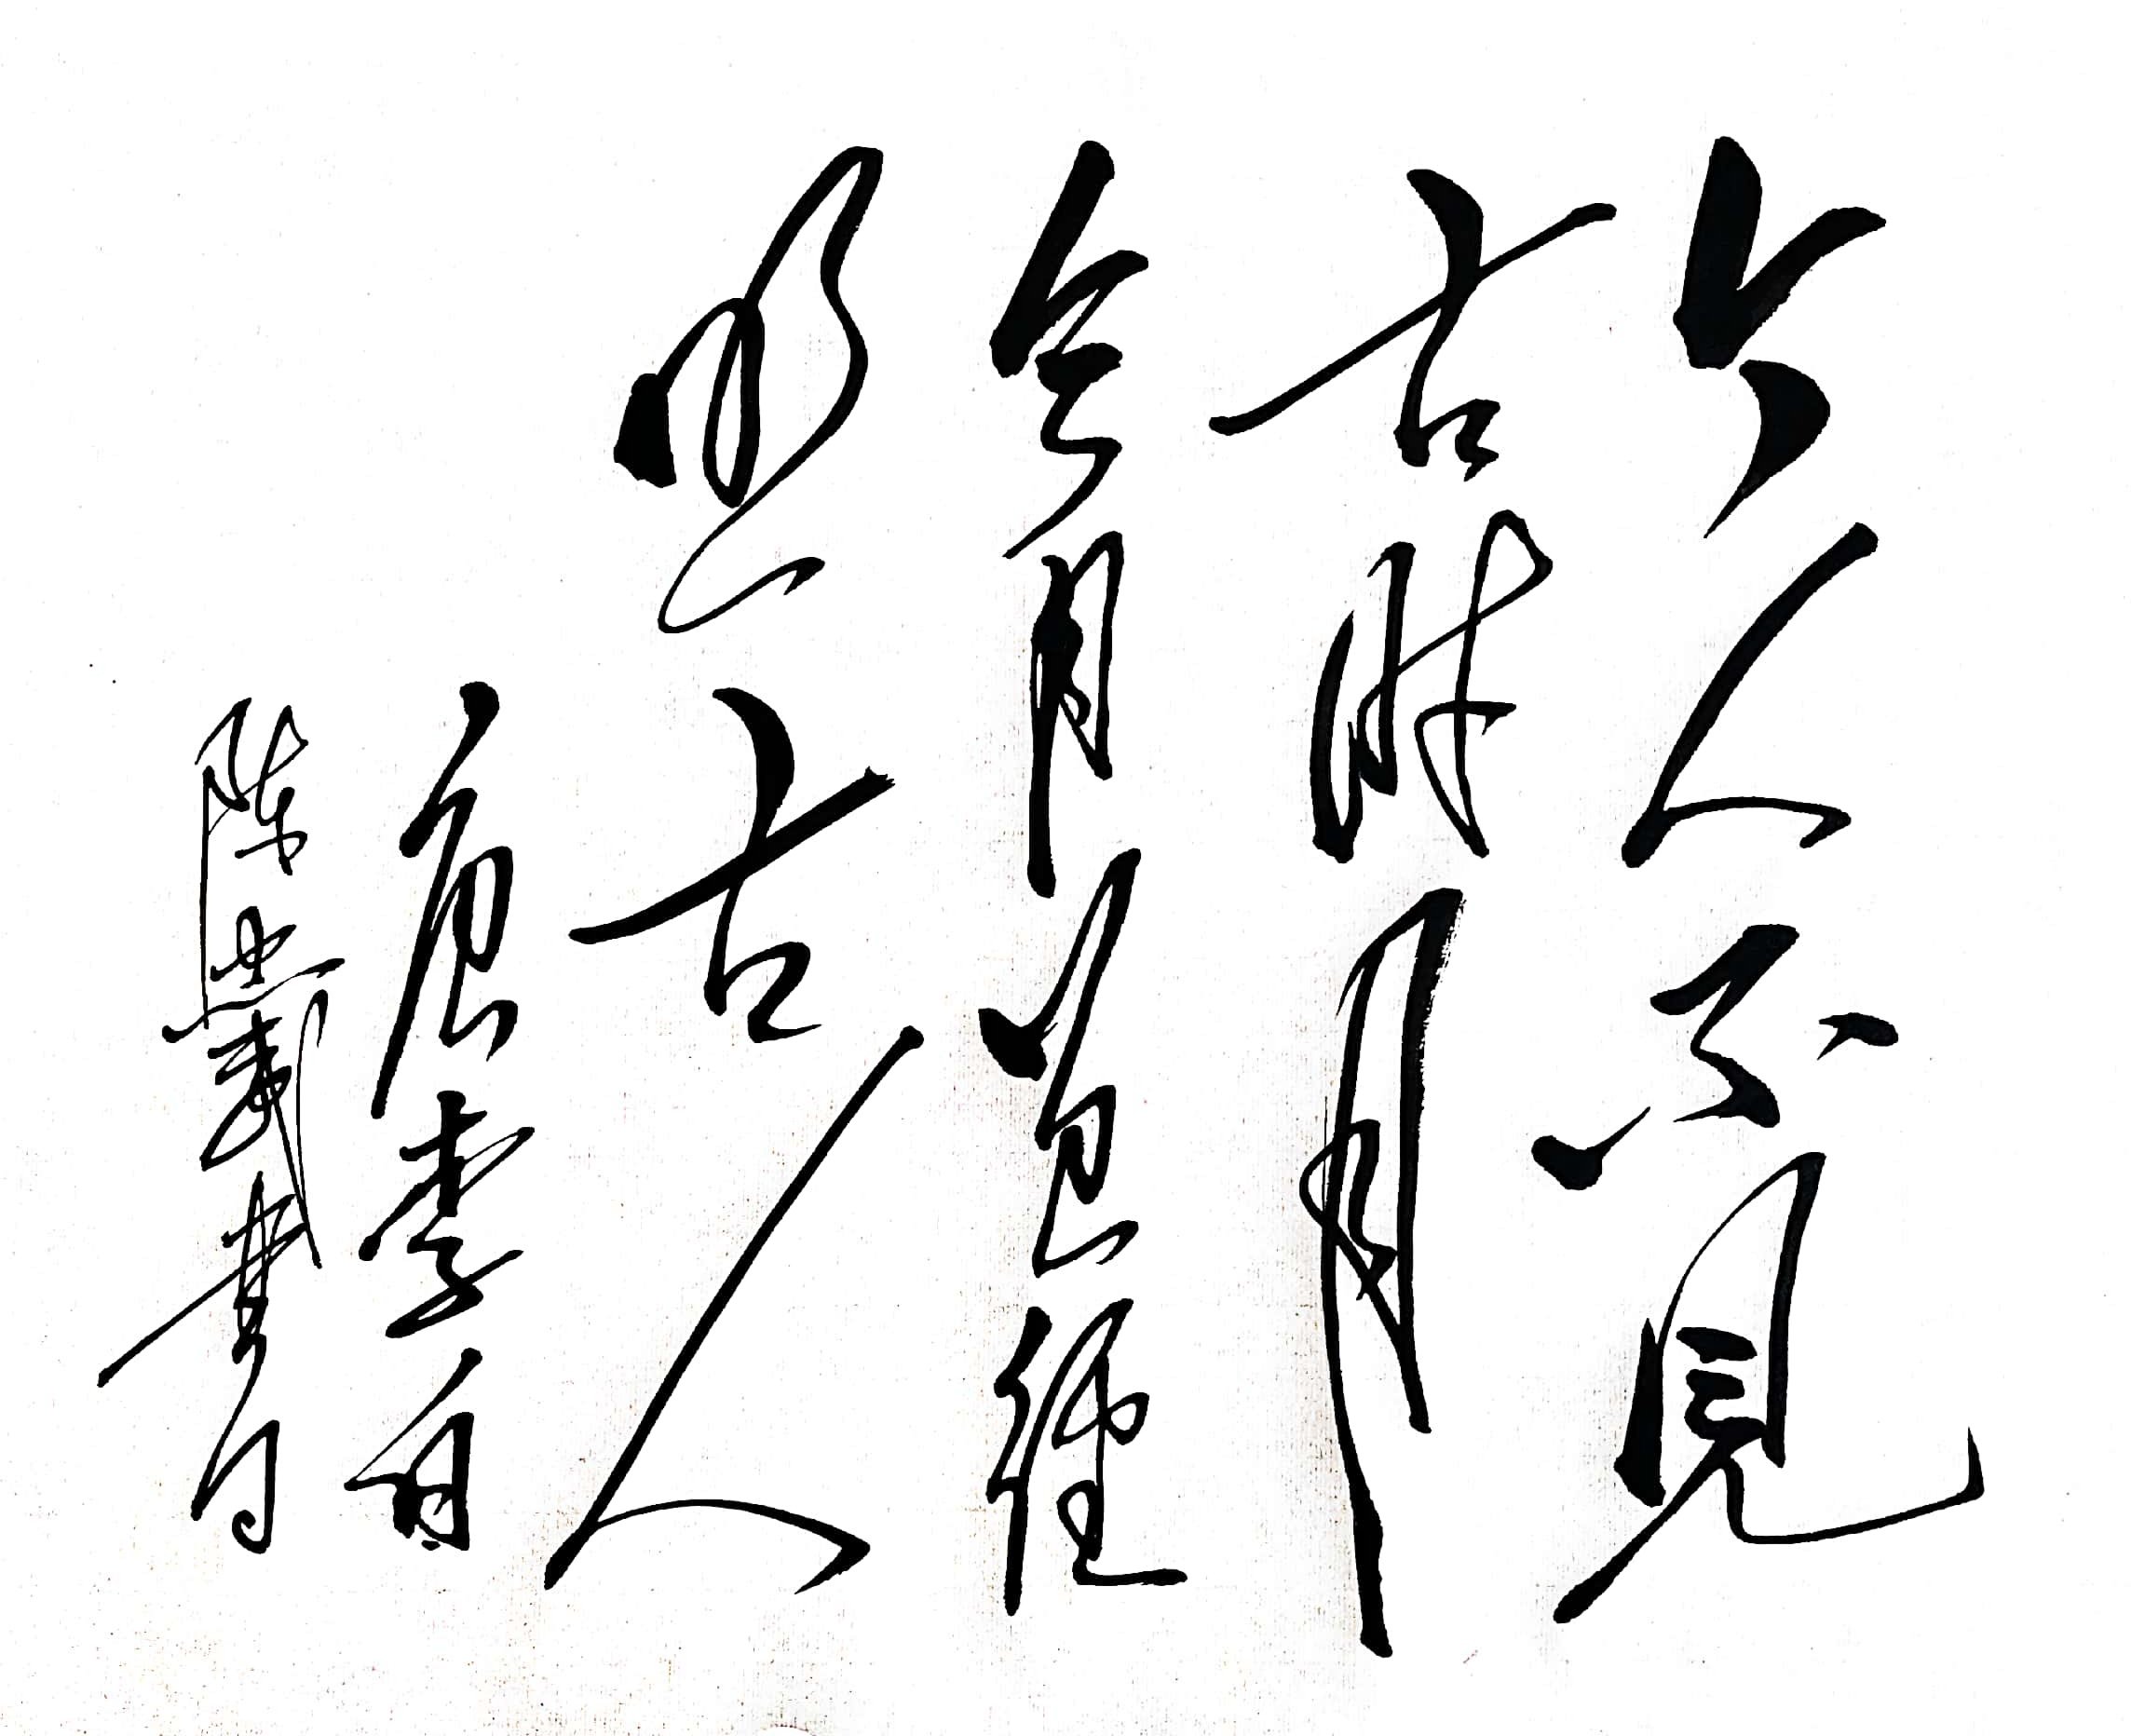 今人不見
古時月
今月曾經
照古人
唐李白
陳興義書